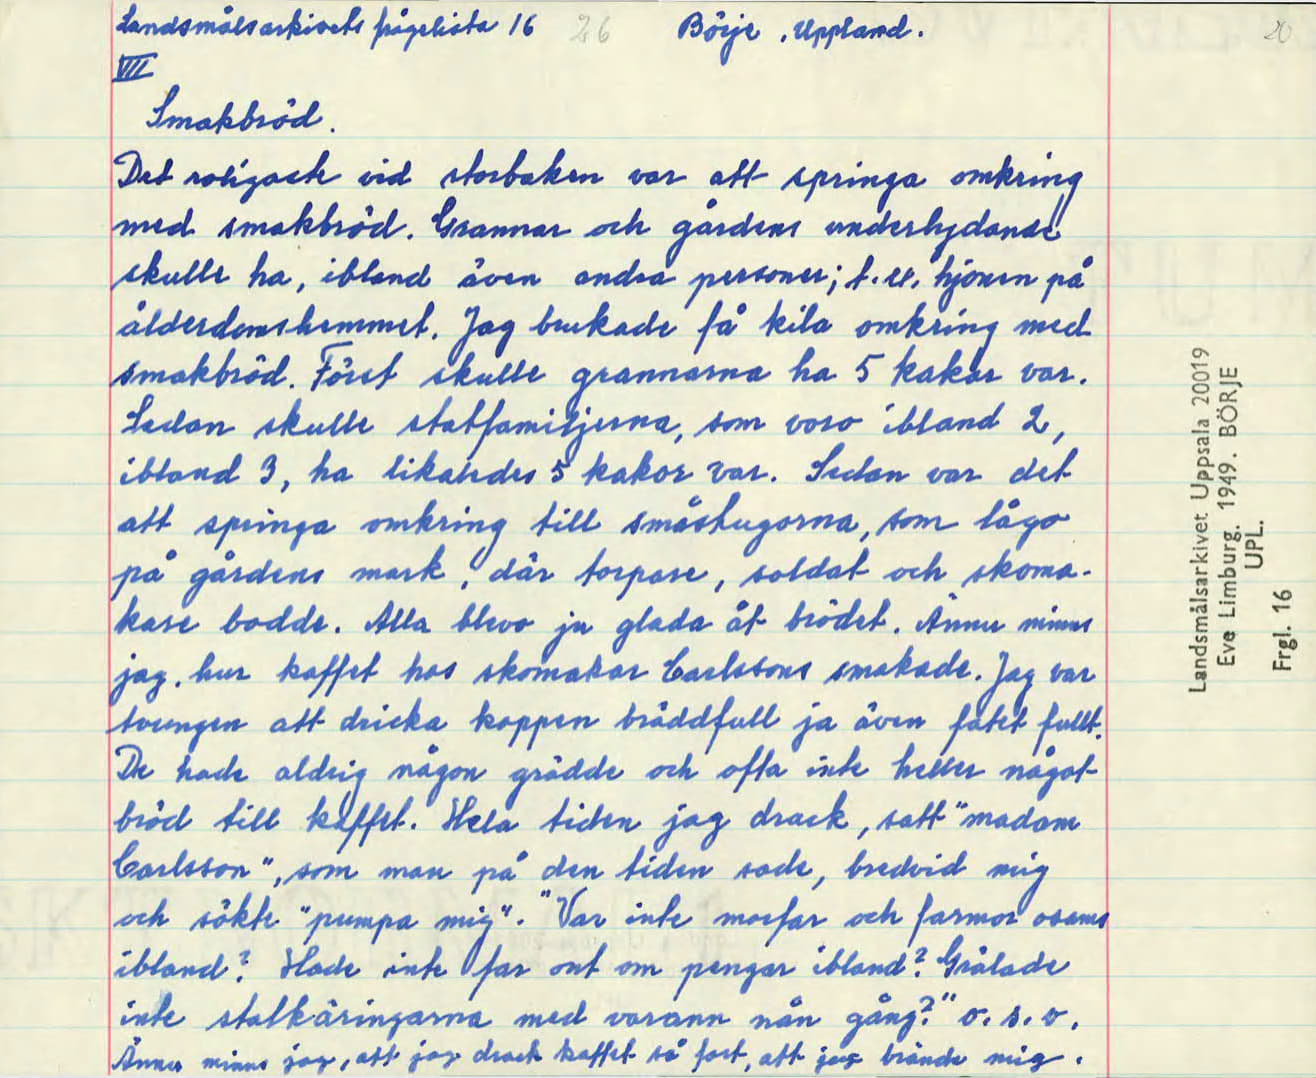 Landsmålsarkivets frågelista 16 26 Börje, Uppland. 20
VII
Smakbröd.
Det roligaste vid storbaken var att springa omkring
med smakbröd. Grannar och gårdens underlydande
skulle ha, ibland även andra personer; t.ex. hjonen på
ålderdomshemmet. Jag brukade få kila omkring med
smakbröd. Först skulle grannarna ha 5 kakor var.
Sedan skulle statfamiljerna, som voro ibland 2,
ibland 3, ha likaledes 5 kakor var. Sedan var det
att springa omkring till småstugorna, som lågo
på gårdens mark, där torpare, soldat och skoma-
kare bodde. Alla blevo ju glada åt brödet. Ännu minns
jag, hur kaffet hos skomakar Carlssons smakade. Jag var
tvungen att dricka koppen bräddfull ja även fatet fullt.
De hade aldrig någon grädde och ofta inte heller något
bröd till kaffet. Hela tiden jag drack, satt "madam
Carlsson", som man på den tiden sade, bredvid mig
och sökte "pumpa mig". "Var inte morfar och farmor osams
ibland? Hade inte far ont om pengar ibland? Grälade
inte statkäringarna med varann nån gång?" o.s.v.
Ännu minns jag, att jag drack kaffet så fort, att jag brände mig.
Landsmålsarkivet Uppsala 20019
Eve Limburg. 1949. BÖRJE
UPL.
Frgl. 16